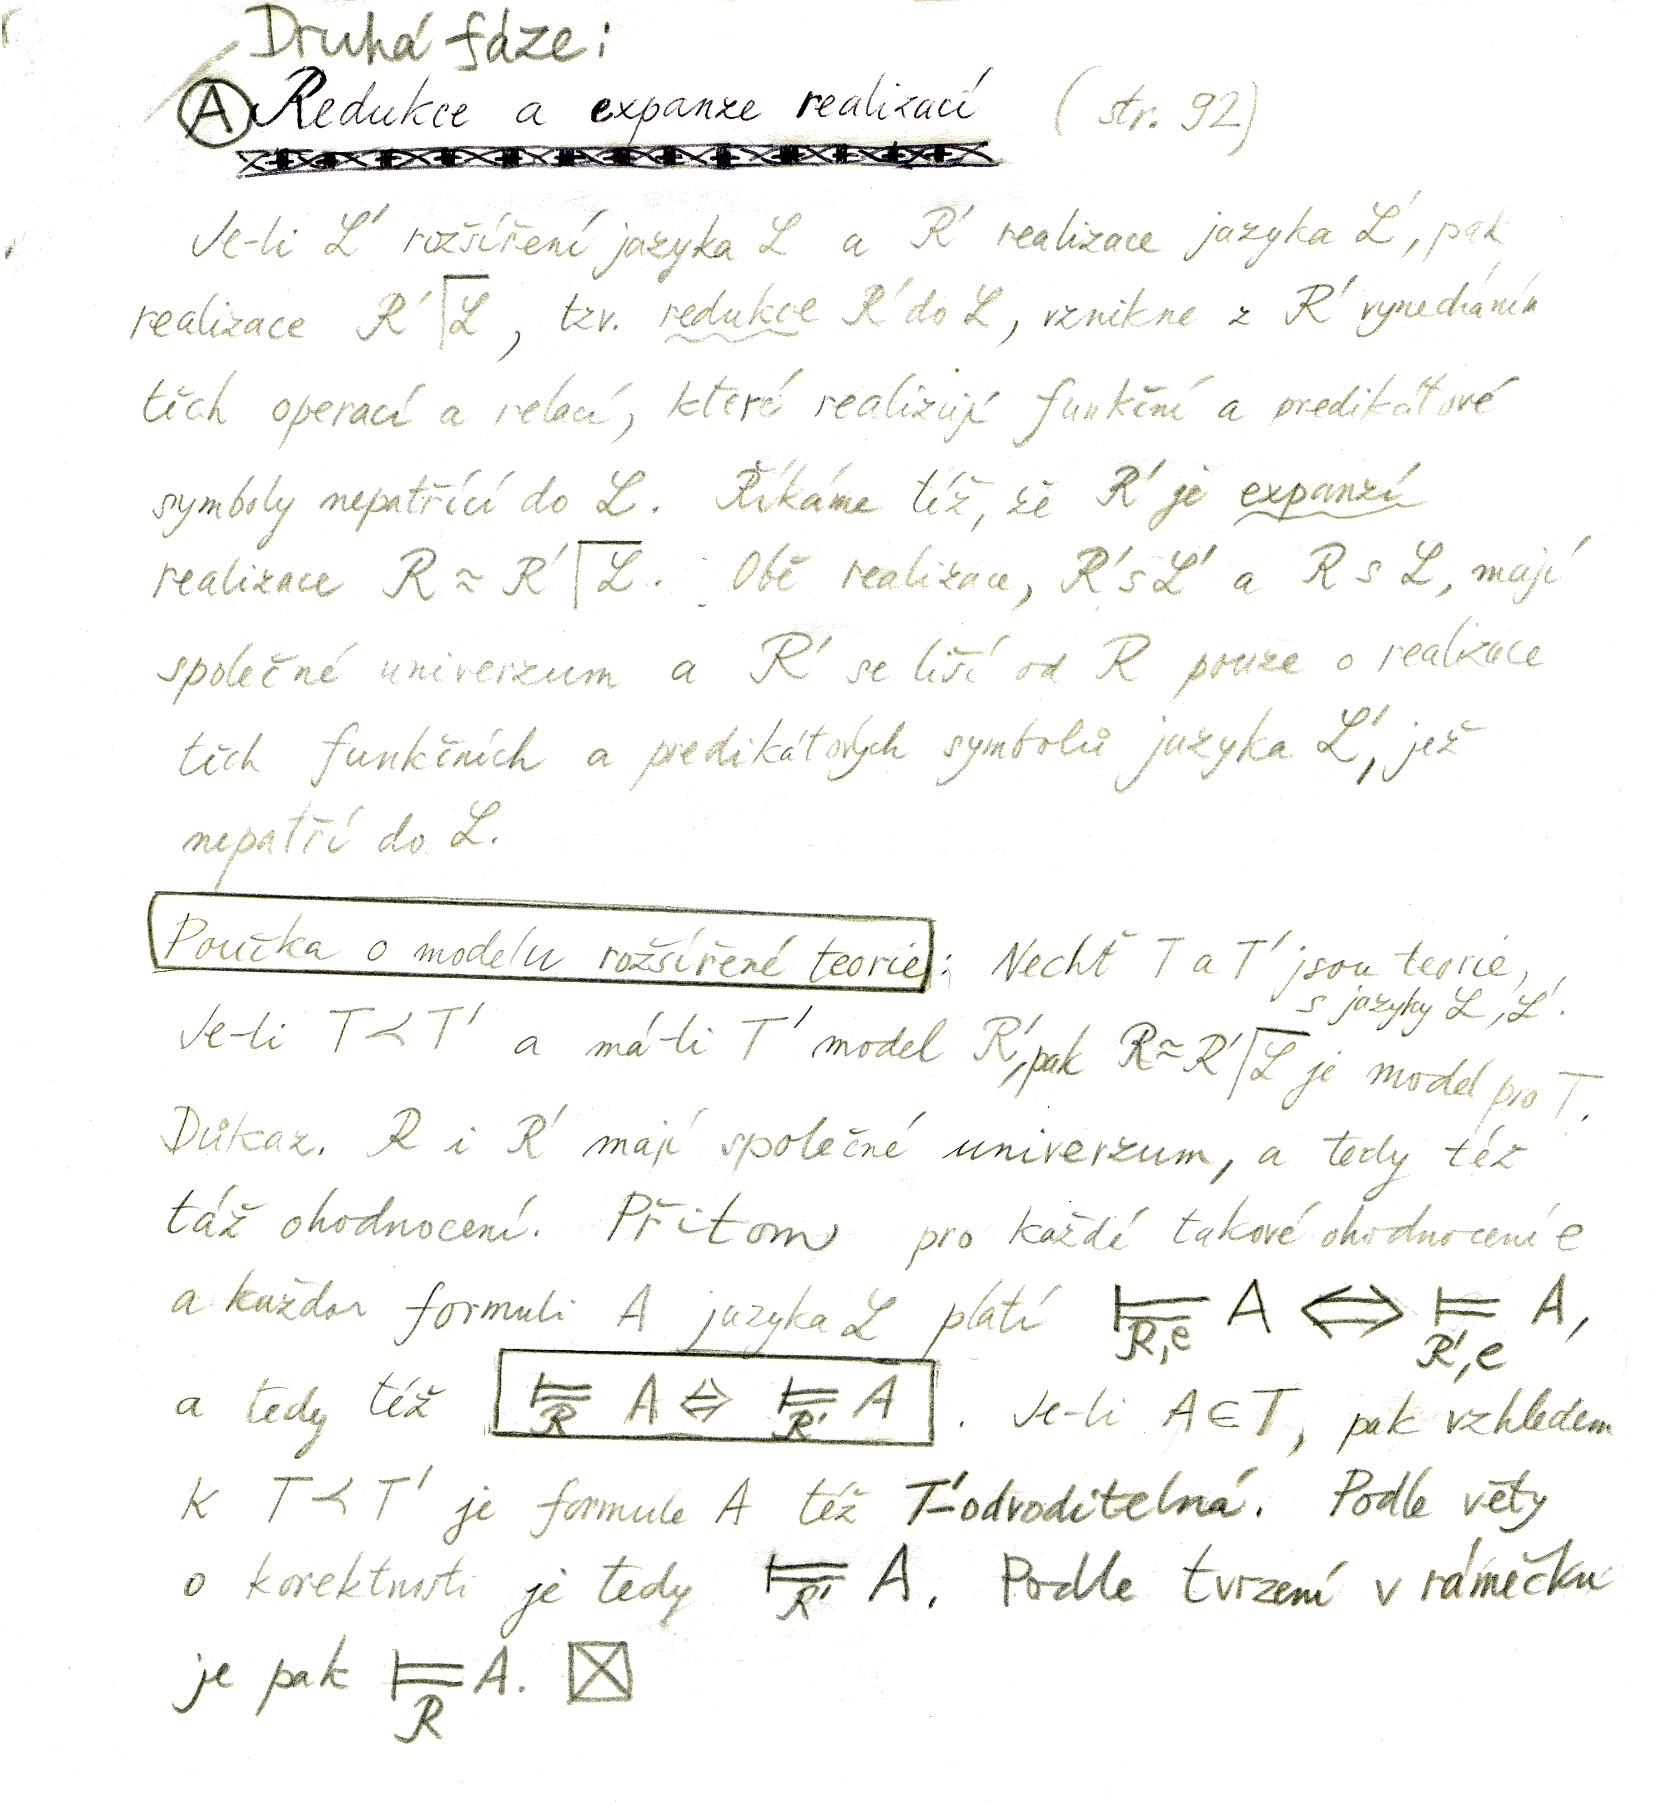 Druhá fáze:
Ⓐ Redukce a expanze realizací (str. 92)
Je-li ℒ′ rozšíření jazyka ℒ a ℛ′ realizace jazyka ℒ′, pak
realizace ℛ′⌈ℒ, tzv. redukce ℛ′ do ℒ, vznikne z ℛ′ vynecháním
těch operací a relací, které realizují funkční a predikátové
symboly nepatřící do ℒ. Říkáme též, že ℛ′ je expanzí
realizace ℛ ≈ ℛ′⌈ℒ. Obě realizace, ℛ′ s ℒ′ a ℛ s ℒ, mají
společné univerzum a ℛ′ se liší od ℛ pouze o realizace
těch funkčních a predikátových symbolů jazyka ℒ′, jež
nepatří do ℒ.
Poučka o modelu rozšířené teorie: Nechť T a T′ jsou teorie,
s jazyky ℒ, ℒ′.
Je-li T ≺ T′ a má-li T′ model ℛ′, pak ℛ ≈ ℛ′⌈ℒ je model pro T.
Důkaz. ℛ i ℛ′ mají společné univerzum, a tedy též
táž ohodnocení. Přitom pro každé takové ohodnocení e
a každou formuli A jazyka ℒ platí ⊨ℛ,e A ⇔ ⊨ℛ′,e A,
a tedy též ⊨ℛ A ⇔ ⊨ℛ′ A. Je-li A ∈ T, pak vzhledem
k T ≺ T′ je formule A též T′-odvoditelná. Podle věty
o korektnosti je tedy ⊨ℛ′ A. Podle tvrzení v rámečku
je pak ⊨ℛ A. ☒